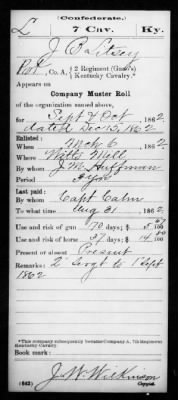 (Confederate.)
L 7 Cav. Ky.
J B
Pvt, Co. A, 2 Regiment (Gano's) Kentucky Cavalry.*
Appears on
Company Muster Roll
of the organization named above,
for Sept & Oct, 1862
dated Dec 15, 1862
Enlisted:
When Mch 6, 1862
Where Mill
By whom J. M. Huffman
Period 3 Yrs
Last paid:
By whom Capt
To what time Aug 31, 186
Use and risk of gun 70 days; $
Use and risk of horse 37 days; $ 14
Present or absent Present
Remarks: 2 Sergt to 1 Sept
1862
*This company subsequently became Company A, 7th Regiment Kentucky Cavalry.
Book mark:
J. W. Wilkinson
(642) Copyist.